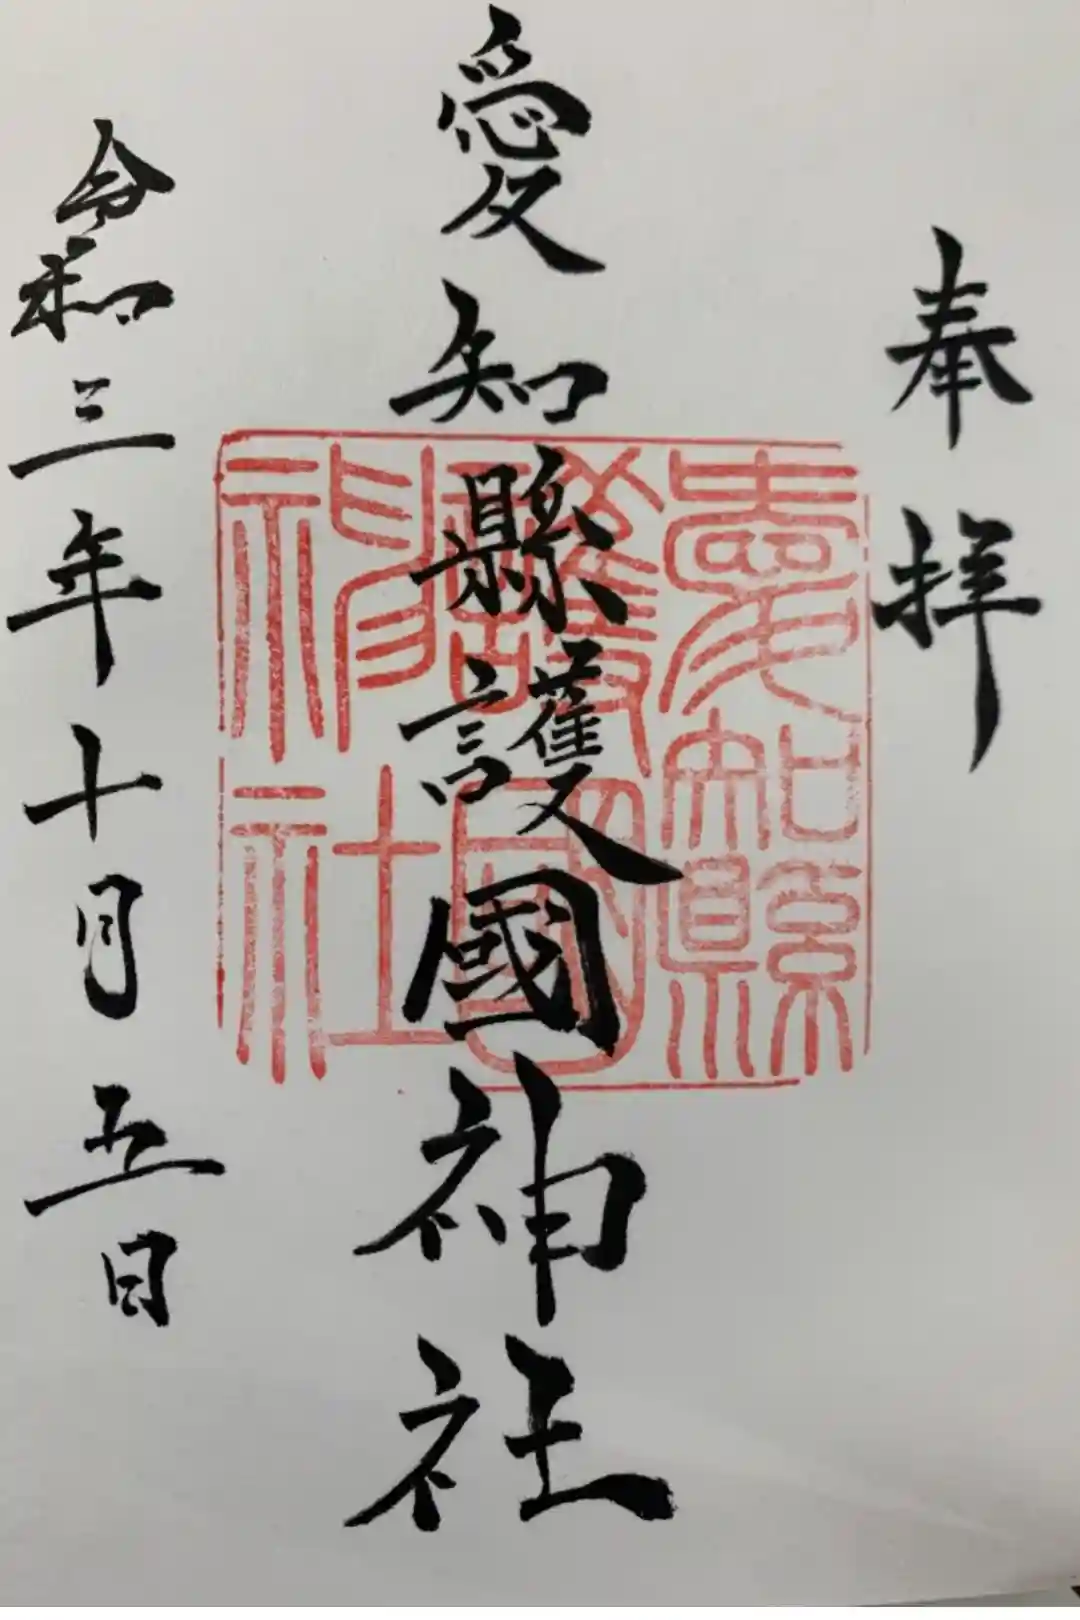 奉拝
愛知縣護國神社
愛知縣
護國
神社
令和三年十月五日